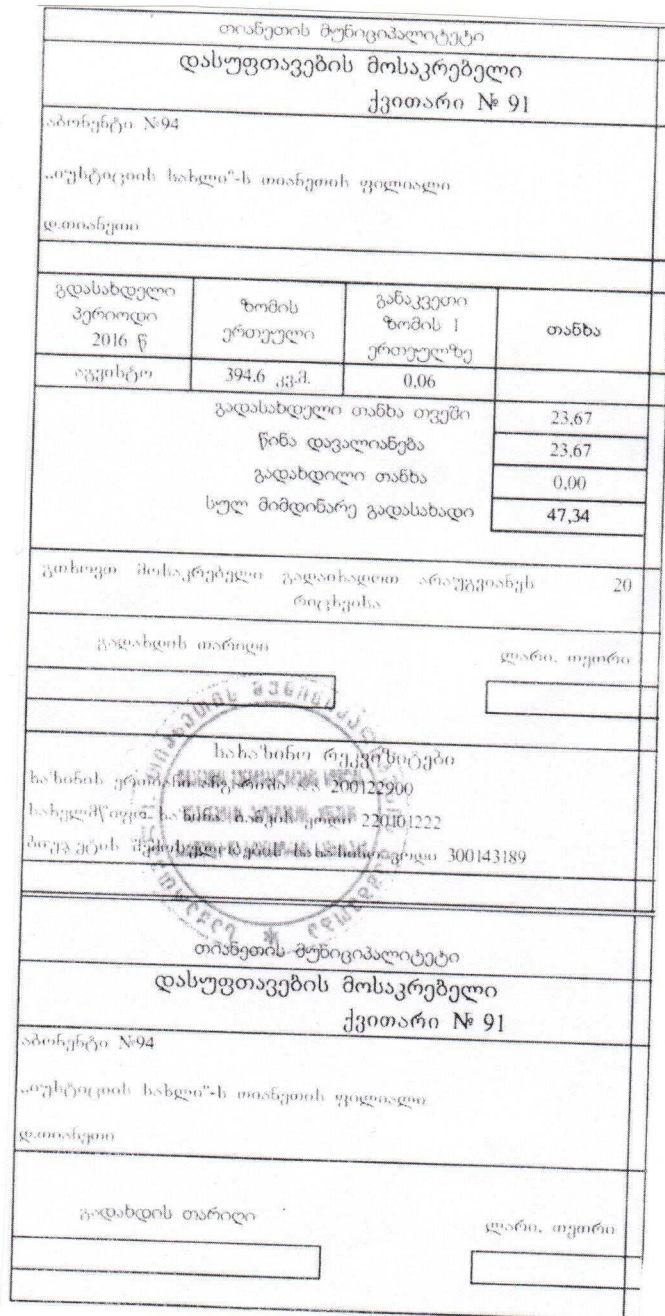 თიანეთის მუნიციპალიტეტი
დასუფთავების მოსაკრებელი
ქვითარი № 91
აბონენტი №94
„იუსტიციის სახლი“-ს თიანეთის ფილიალი
დ.თიანეთი
გდასახდელი პერიოდი 2016 წ
ზომის ერთეული
განაკვეთი ზომის 1 ერთეულზე
თანხა
აგვისტო 394.6 კვ.მ. 0.06
გადასახდელი თანხა თვეში 23,67
წინა დავალიანება 23,67
გადახდილი თანხა 0,00
სულ მიმდინარე გადასახადი 47,34
გთხოვთ მოსაკრებელი გადაიხადოთ არაუგვიანეს 20
რიცხვისა
გადახდის თარიღი ლარი, თეთრი
სახაზინო რეკვიზიტები
ხაზინის ერთიანი ანგარიში 200122900
სახელმწიფო ხაზინა ბანკის კოდი 220101222
ბიუჯეტის შემოსულობების სახაზინო კოდი 300143189
თიანეთის მუნიციპალიტეტი
დასუფთავების მოსაკრებელი
ქვითარი № 91
აბონენტი №94
„იუსტიციის სახლი“-ს თიანეთის ფილიალი
დ.თიანეთი
გადახდის თარიღი ლარი, თეთრი